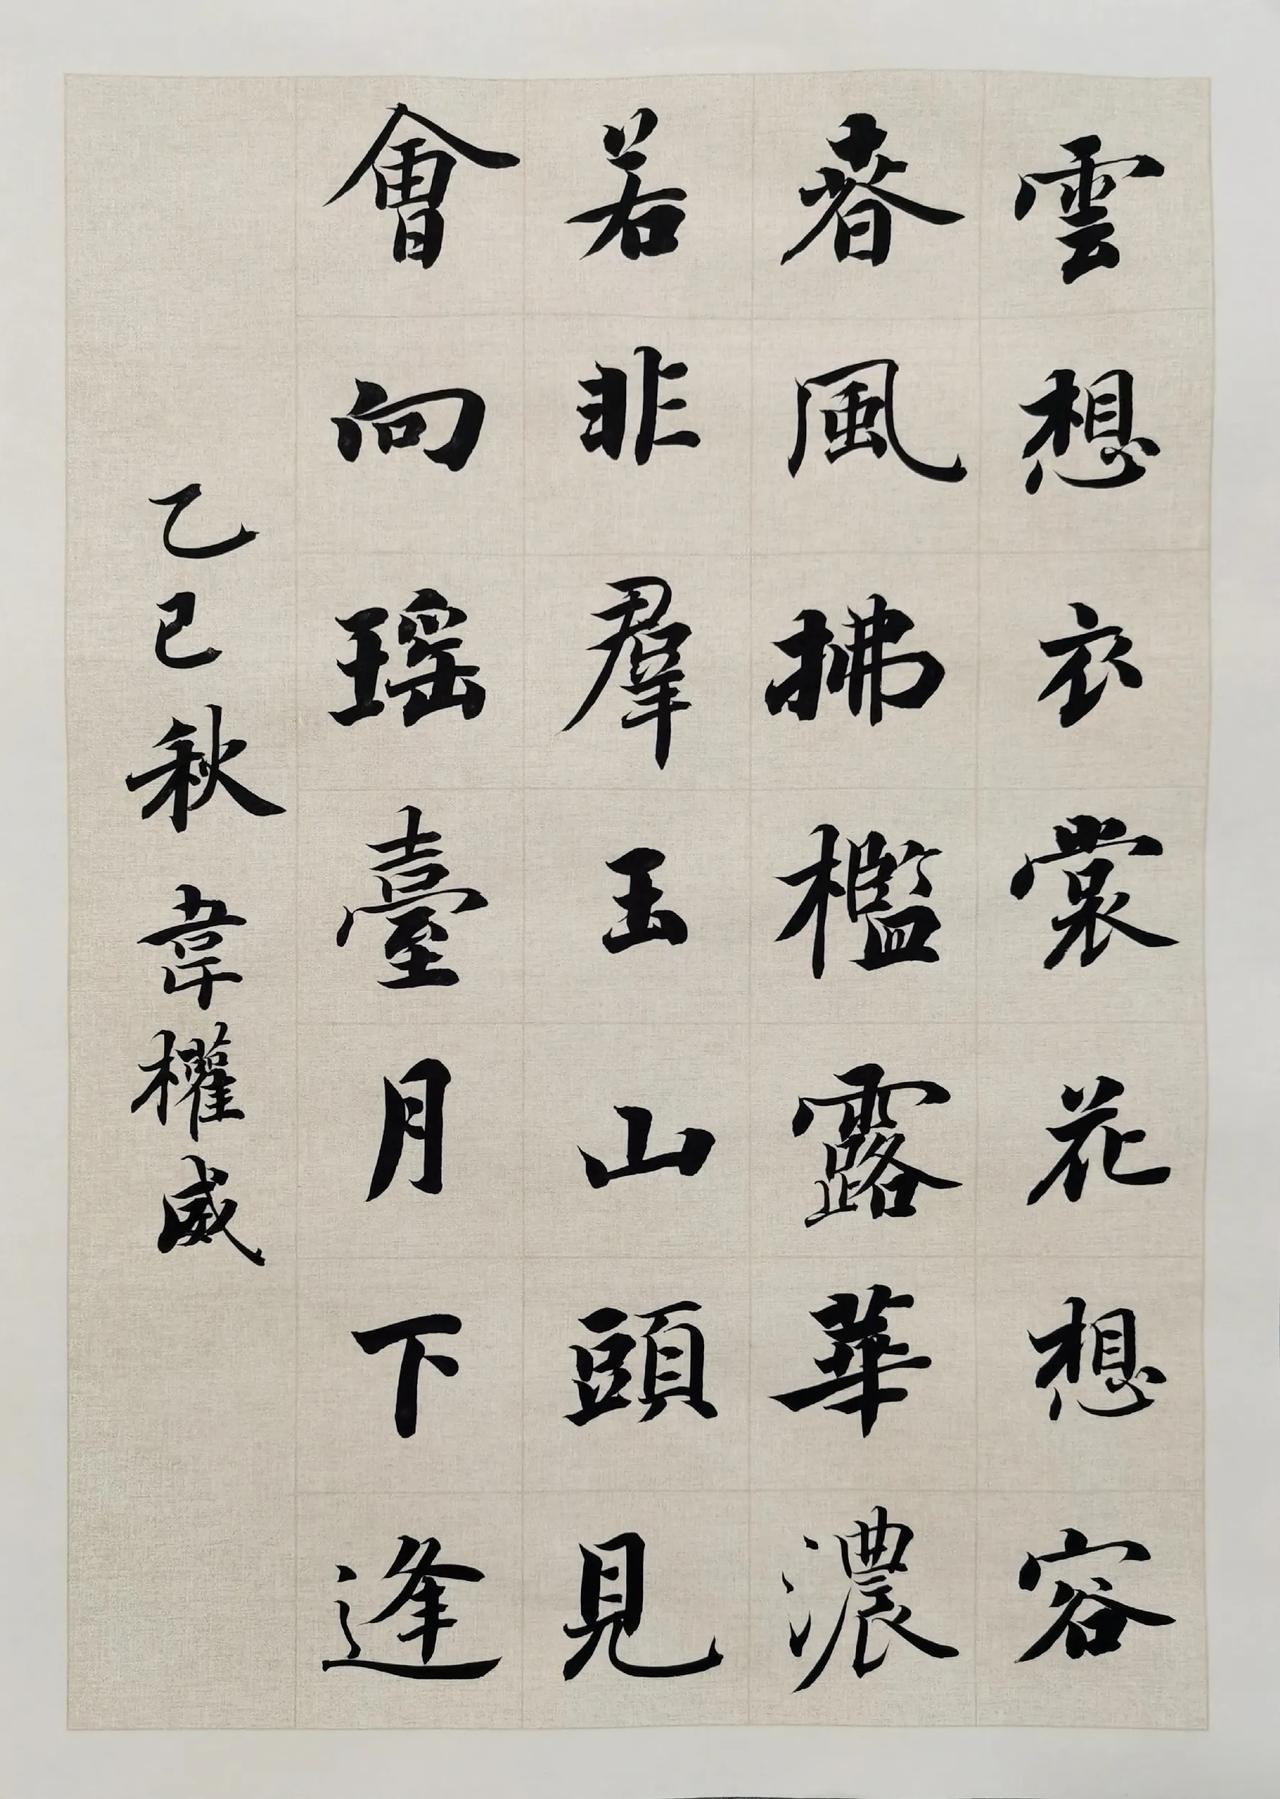 雲想衣裳花想容
春風拂檻露華濃
若非羣玉山頭見
會向瑶臺月下逢
乙巳秋 韋權威